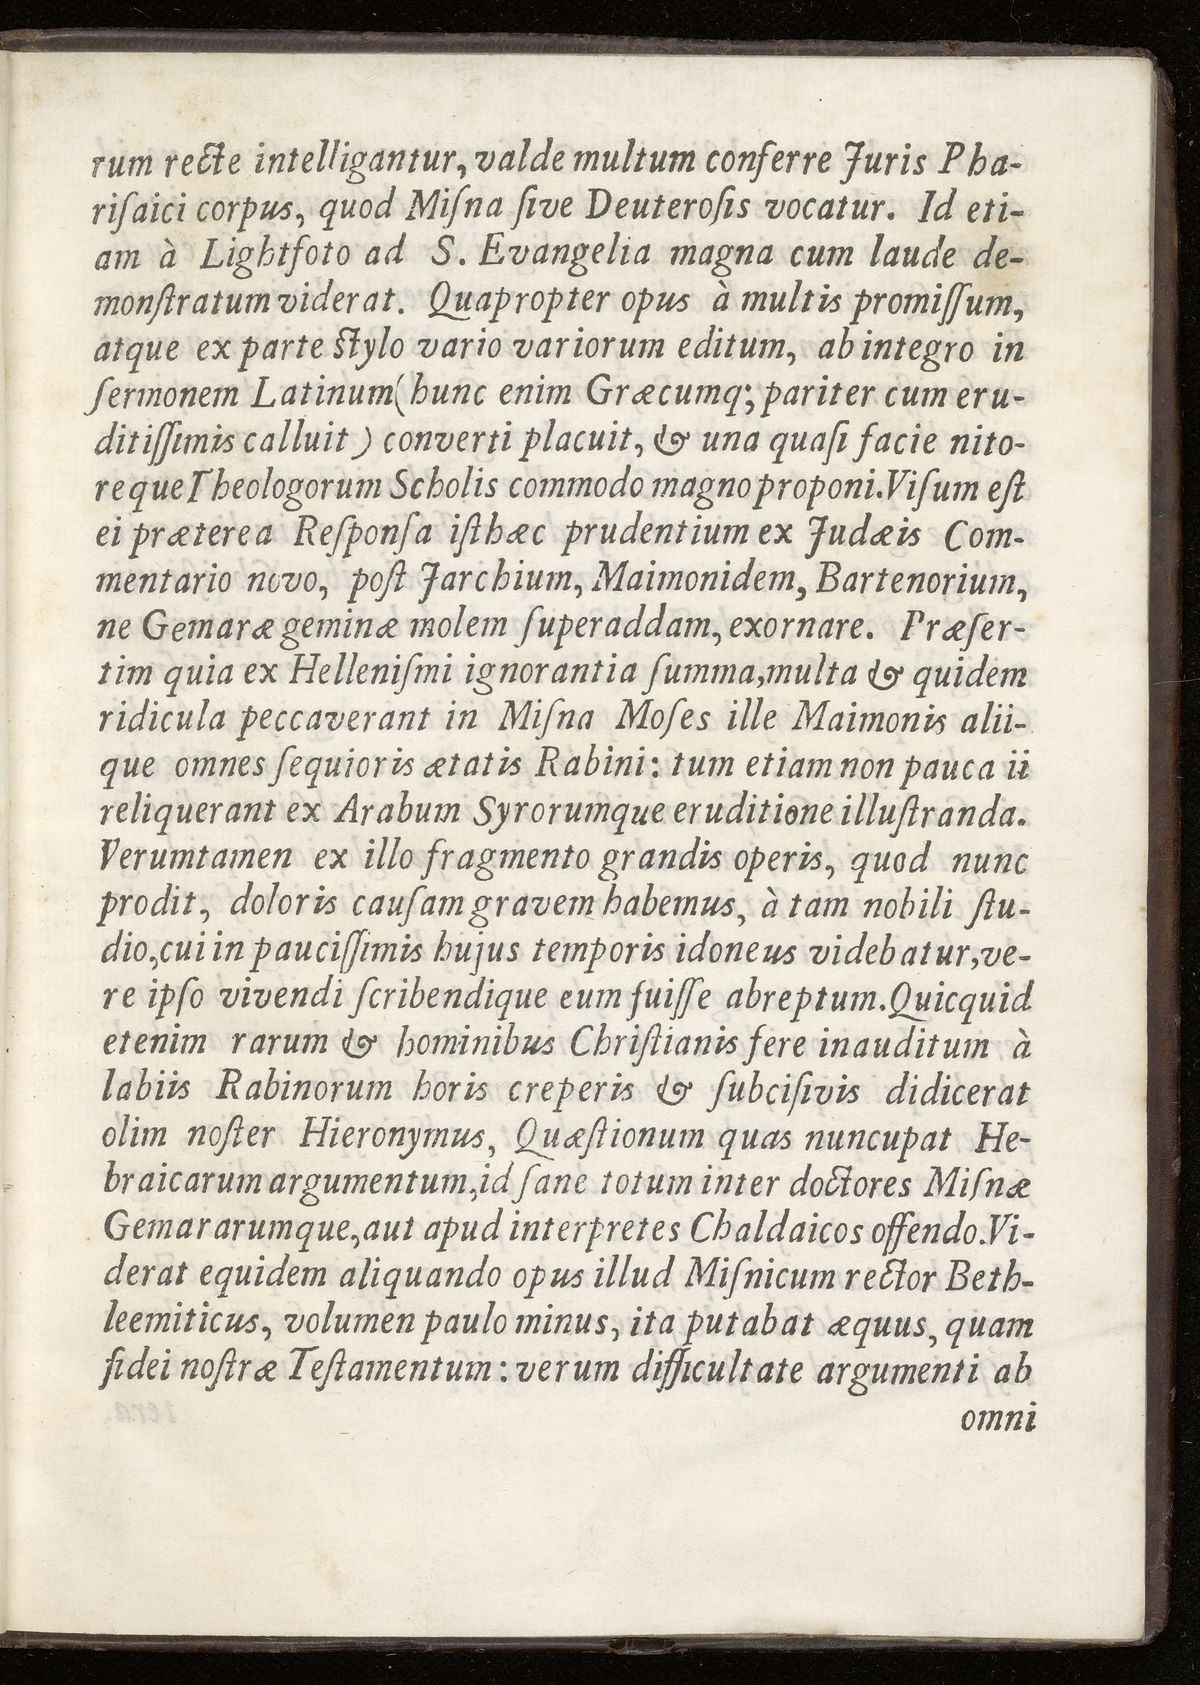 rum recte intelligantur, valde multum conferre Juris Pha-
riſaici corpus, quod Miſna ſive Deuteroſis vocatur. Id eti-
am à Lightfoto ad S. Evangelia magna cum laude de-
monſtratum viderat. Quapropter opus à multis promiſſum,
atque ex parte ſtylo vario variorum editum, ab integro in
ſermonem Latinum (hunc enim Græcumq; pariter cum eru-
ditiſſimis calluit) converti placuit, & una quaſi facie nito-
reque Theologorum Scholis commodo magno proponi. Viſum eſt
ei præterea Reſponſa iſthæc prudentium ex Judæis Com-
mentario novo, poſt Jarchium, Maimonidem, Bartenorium,
ne Gemaræ geminæ molem ſuperaddam, exornare. Præſer-
tim quia ex Helleniſmi ignorantia ſumma, multa & quidem
ridicula peccaverant in Miſna Moſes ille Maimonis alii-
que omnes ſequioris ætatis Rabini: tum etiam non pauca ii
reliquerant ex Arabum Syrorumque eruditione illuſtranda.
Verumtamen ex illo fragmento grandis operis, quod nunc
prodit, doloris cauſam gravem habemus, à tam nobili ſtu-
dio, cui in pauciſſimis hujus temporis idoneus videbatur, ve-
re ipſo vivendi ſcribendique eum fuiſſe abreptum. Quicquid
etenim rarum & hominibus Chriſtianis fere inauditum à
labiis Rabinorum horis creperis & ſubciſivis didicerat
olim noſter Hieronymus, Quæſtionum quas nuncupat He-
braicarum argumentum, id ſane totum inter doctores Miſnæ
Gemararumque, aut apud interpretes Chaldaicos offendo. Vi-
derat equidem aliquando opus illud Miſnicum rector Beth-
leemiticus, volumen paulo minus, ita putabat æquus, quam
fidei noſtræ Teſtamentum: verum difficultate argumenti ab
omni